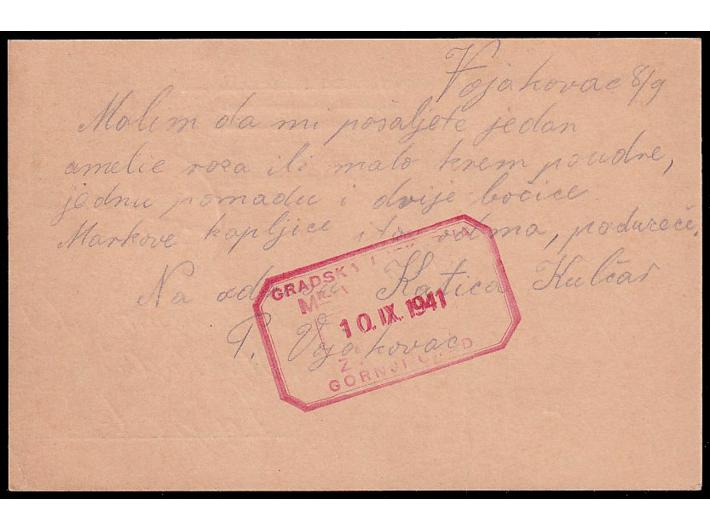 Vojakovac 8/9
Molim da mi pošaljete jedan
amelie roza ili malo krem poudre,
jednu pomadu i dvije bočice
Markove kapljice
Na Katica Kulčar
P. Vojakovac
GRADSKA
Mr.
10. IX. 1941
Z
GORNJI GRAD